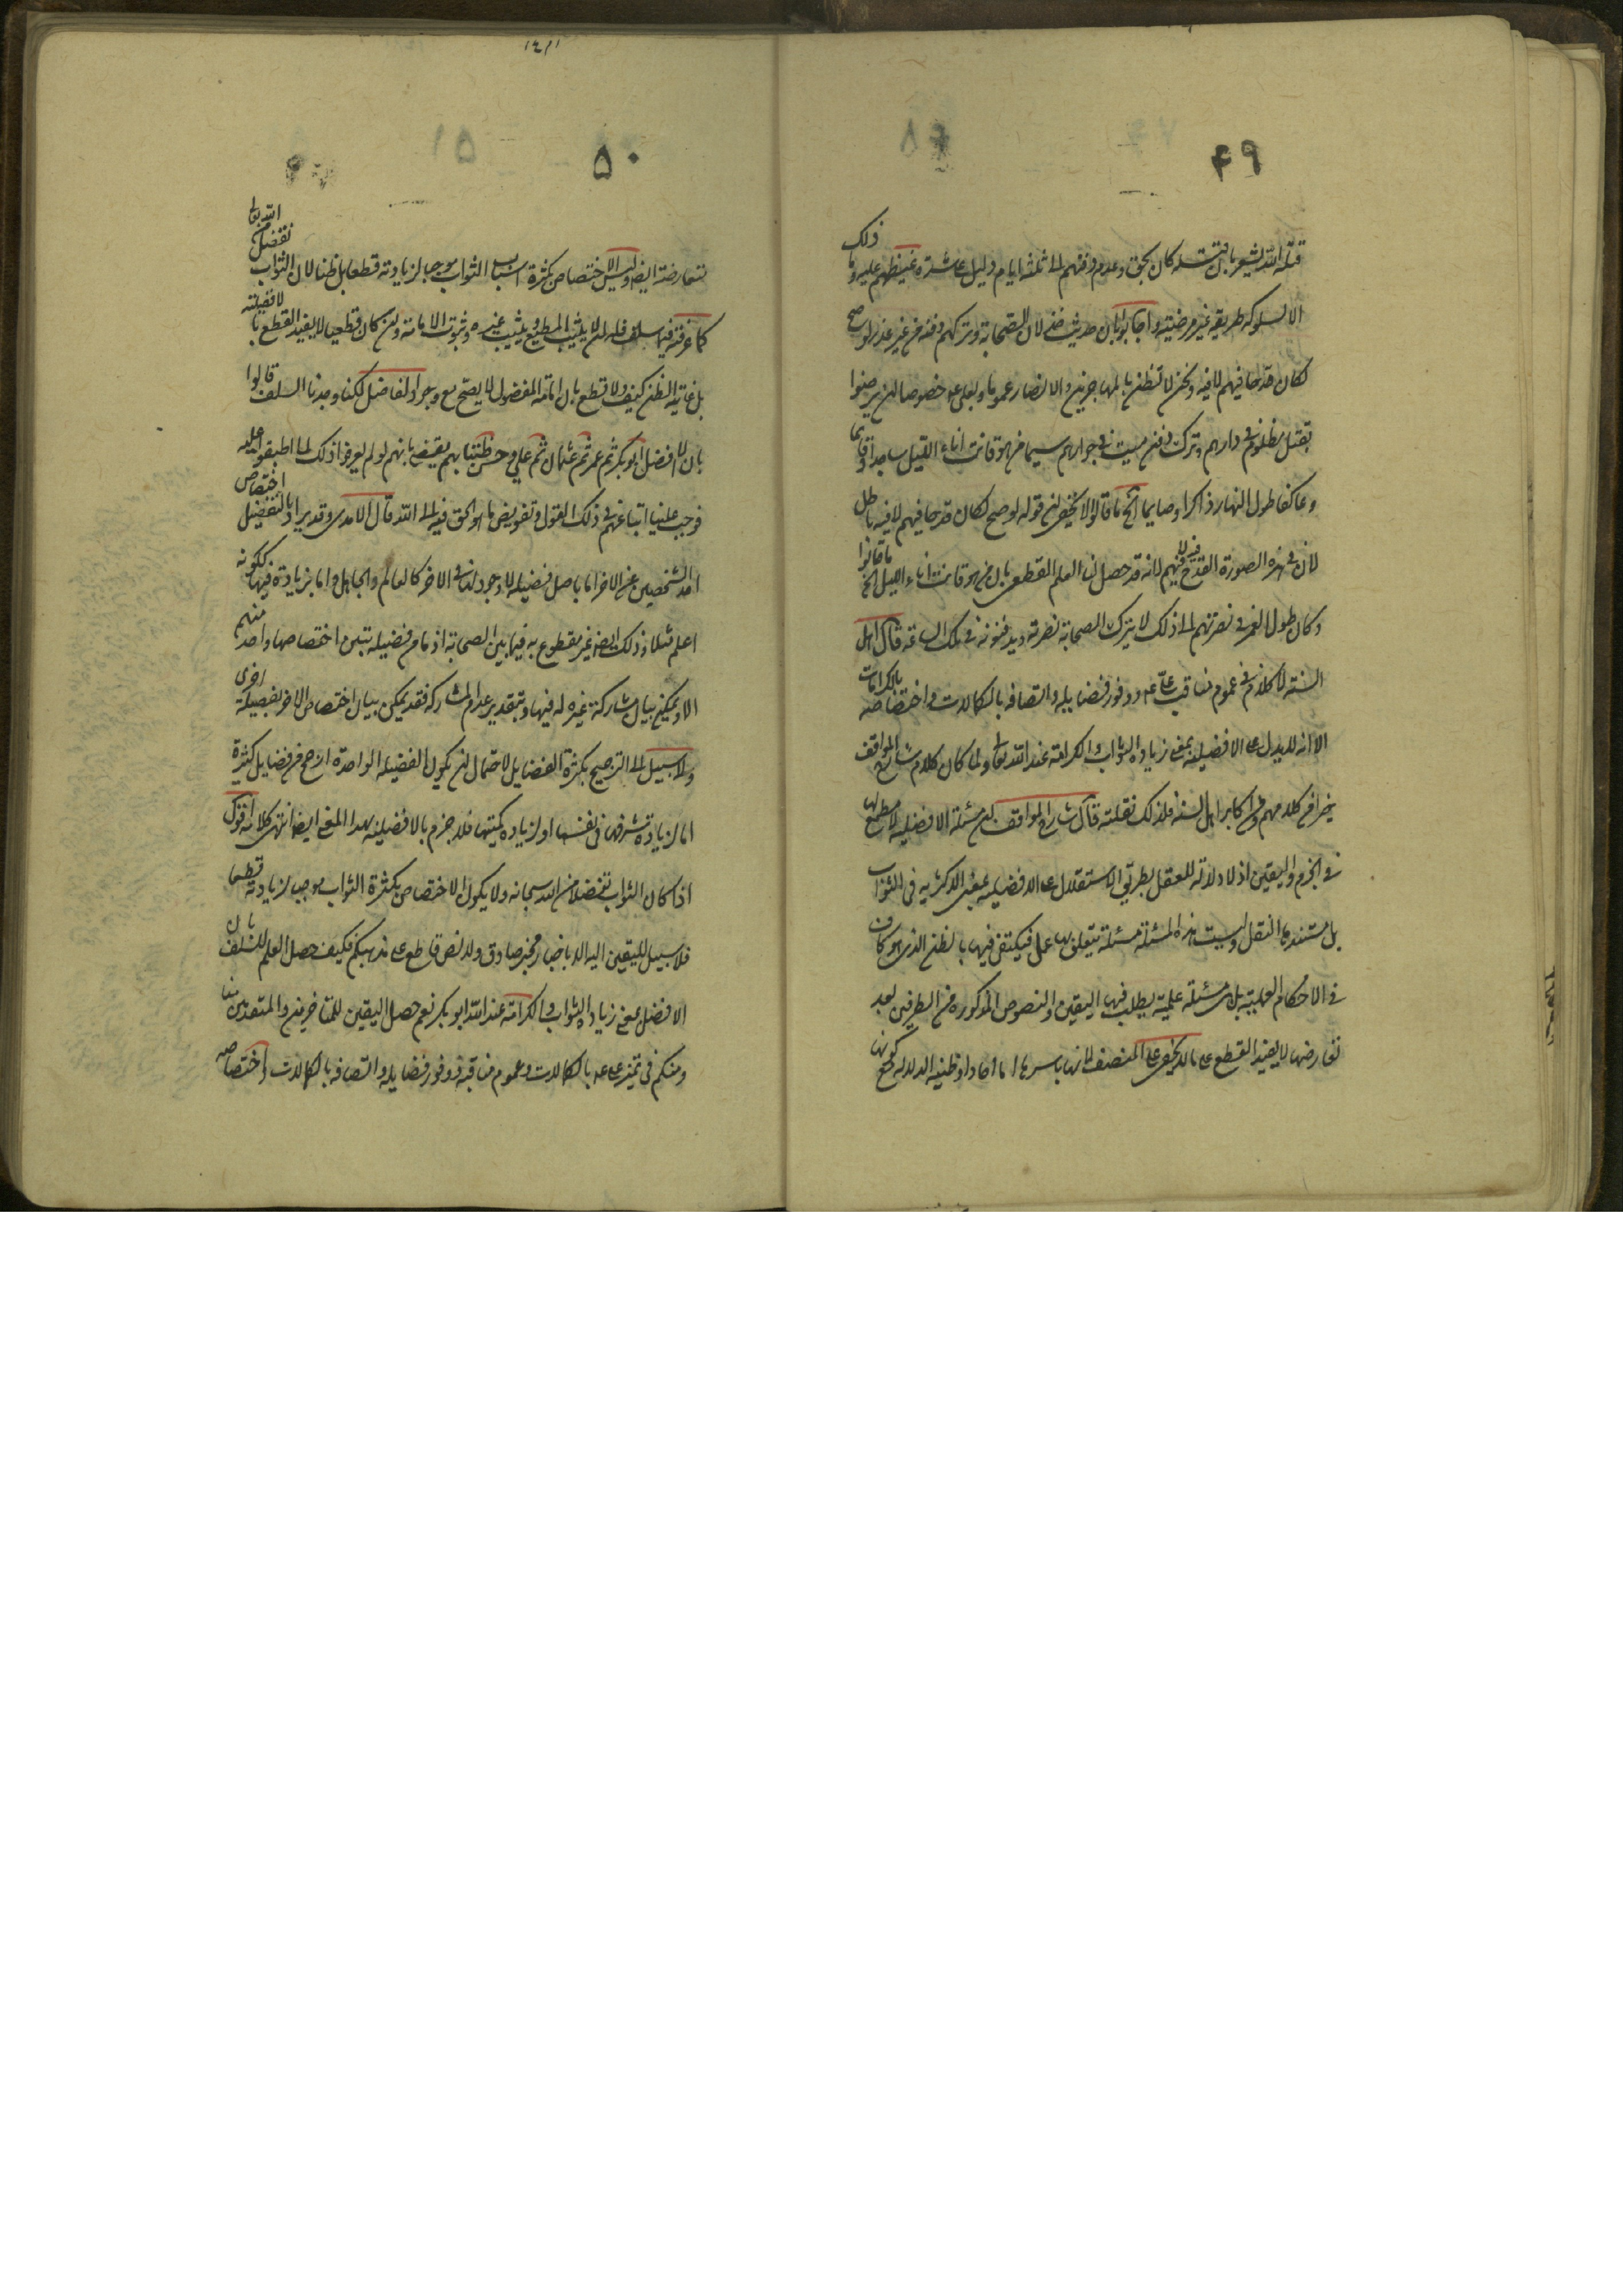 ۴۹
قتله الله يشعر بان قتله كان بحق وعدم دفنهم الى ثلثة ايام دليل على شدة غيظهم عليه وما ذلك
الا لسلوكه طريقة غير مرضية واجابوا بان حديث خذلان الصحابة وتركهم دفنه من غير عذر لو صح
لكان قدحا فيهم لا فيه ونحن لا نظن بالمهاجرين والانصار عموما وبعلي خصوصا ان يرضوا
بقتل مظلوم في دارهم وترك دفن ميت في جوارهم سيما من هو قانت اناء الليل ساجدا وقائما
وعاكفا طول النهار ذاكرا وصايما الخ ما قالوا لا يخفى ان قوله لو صح لكان قدحا فيهم لا فيه باطل
لان في هذه الصورة القدح فيه لا فيهم لانه قد حصل لنا العلم القطعي بان من هو قانت اناء الليل الخ ما قالوا
وكان طول العمر في نصرتهم الى ذلك لا يترك الصحابة نصرته ويدفنونه في تلك الساعة قال اهل
السنة لا كلام في عموم مناقب علي ووفور فضايله واتصافه بالكمالات واختصاصه بالكرامات
الا انه لا يدل على الافضلية بمعنى زيادة الثواب والكرامة عند الله تعالى ولما كان كلام شارح المواقف
من كلامهم وهو من اكابر اهل السنة فلذلك نقلته قال شارح المواقف ان مسئلة الافضلية لا مطمع فيها
في الجزم واليقين اذ لا دلالة للعقل بطريق الاستقلال على الافضلية بمعنى الاكثرية في الثواب
بل مستندها النقل وليست هذه المسئلة مسئلة يتعلق بها عمل فيكتفى فيها بالظن الذي هو كاف
في الاحكام العملية بل هي مسئلة علمية يطلب فيها اليقين والنصوص المذكورة من الطرفين بعد
تعارضها لا يفيد القطع على ما لا يخفى على المنصف لانها باسرها اما احاد او ظنية الدلالة مع كونها
۵۰
متعارضة ايضا وليس الاختصاص بكثرة اسباب الثواب موجبا لزيادته قطعا بل ظنا لان الثواب تفضل من الله تعالى
كما عرفته فيما سلف فله ان لا يثيب المطيع ويثيب غيره وثبوت الامامة وان كان قطعيا لا يفيد القطع بالافضلية
بل غايته الظن كيف ولا قطع بان امامة المفضول لا يصح مع وجود الفاضل لكنا وجدنا السلف قالوا
بان الافضل ابو بكر ثم عمر ثم عثمان ثم علي وحسن ظننا بهم يقتضي بانهم لو لم يعرفوا ذلك لما اطبقوا عليه
فوجب علينا اتباعهم في ذلك القول وتفويض ما هو الحق فيه الى الله قال الامدي وقد يراد بالتفضيل اختصاص
احد الشخصين عن الاخر اما باصل فضيلة لا وجود لها في الاخر كالعالم والجاهل واما بزيادة فيها ككونه
اعلم مثلا وذلك ايضا غير مقطوع به فيما بين الصحابة اذ ما من فضيلة تبين اختصاصها واحد منهم
الا ويمكن بيان مشاركة غيره له فيها وبتقدير عدم المشاركة فقد يمكن بيان اختصاص الاخر بفضيلة اخرى
ولا سبيل الى الترجيح بكثرة الفضايل لاحتمال ان يكون الفضيلة الواحدة ارجح من فضايل كثيرة
اما لزيادة شرفها في نفسها او لزيادة كميتها فلا جزم بالافضلية بهذا المعنى ايضا انتهى كلامه اقول
اذا كان الثواب تفضلا من الله سبحانه ولا يكون الاختصاص بكثرة الثواب موجبا لزيادته قطعا
فلا سبيل لليقين اليه الا باخبار مخبر صادق ولا نص قاطع على مذهبكم فكيف حصل العلم للسلف بان
الافضل بمعنى زيادة الثواب والكرامة عند الله ابو بكر نعم حصل اليقين للمتاخرين والمتقدمين منا
ومنكم في تميز علي بالكمالات وعموم مناقبه ووفور فضايله واتصافه بالكمالات واختصاصه